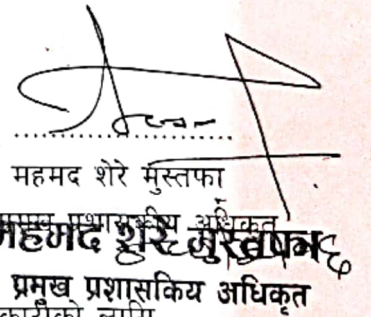 महमद शेरे मुस्तफा
प्रमुख प्रशासकीय अधिकृत
महमद शेरे मुस्तफा
प्रमुख प्रशासकिय अधिकृत